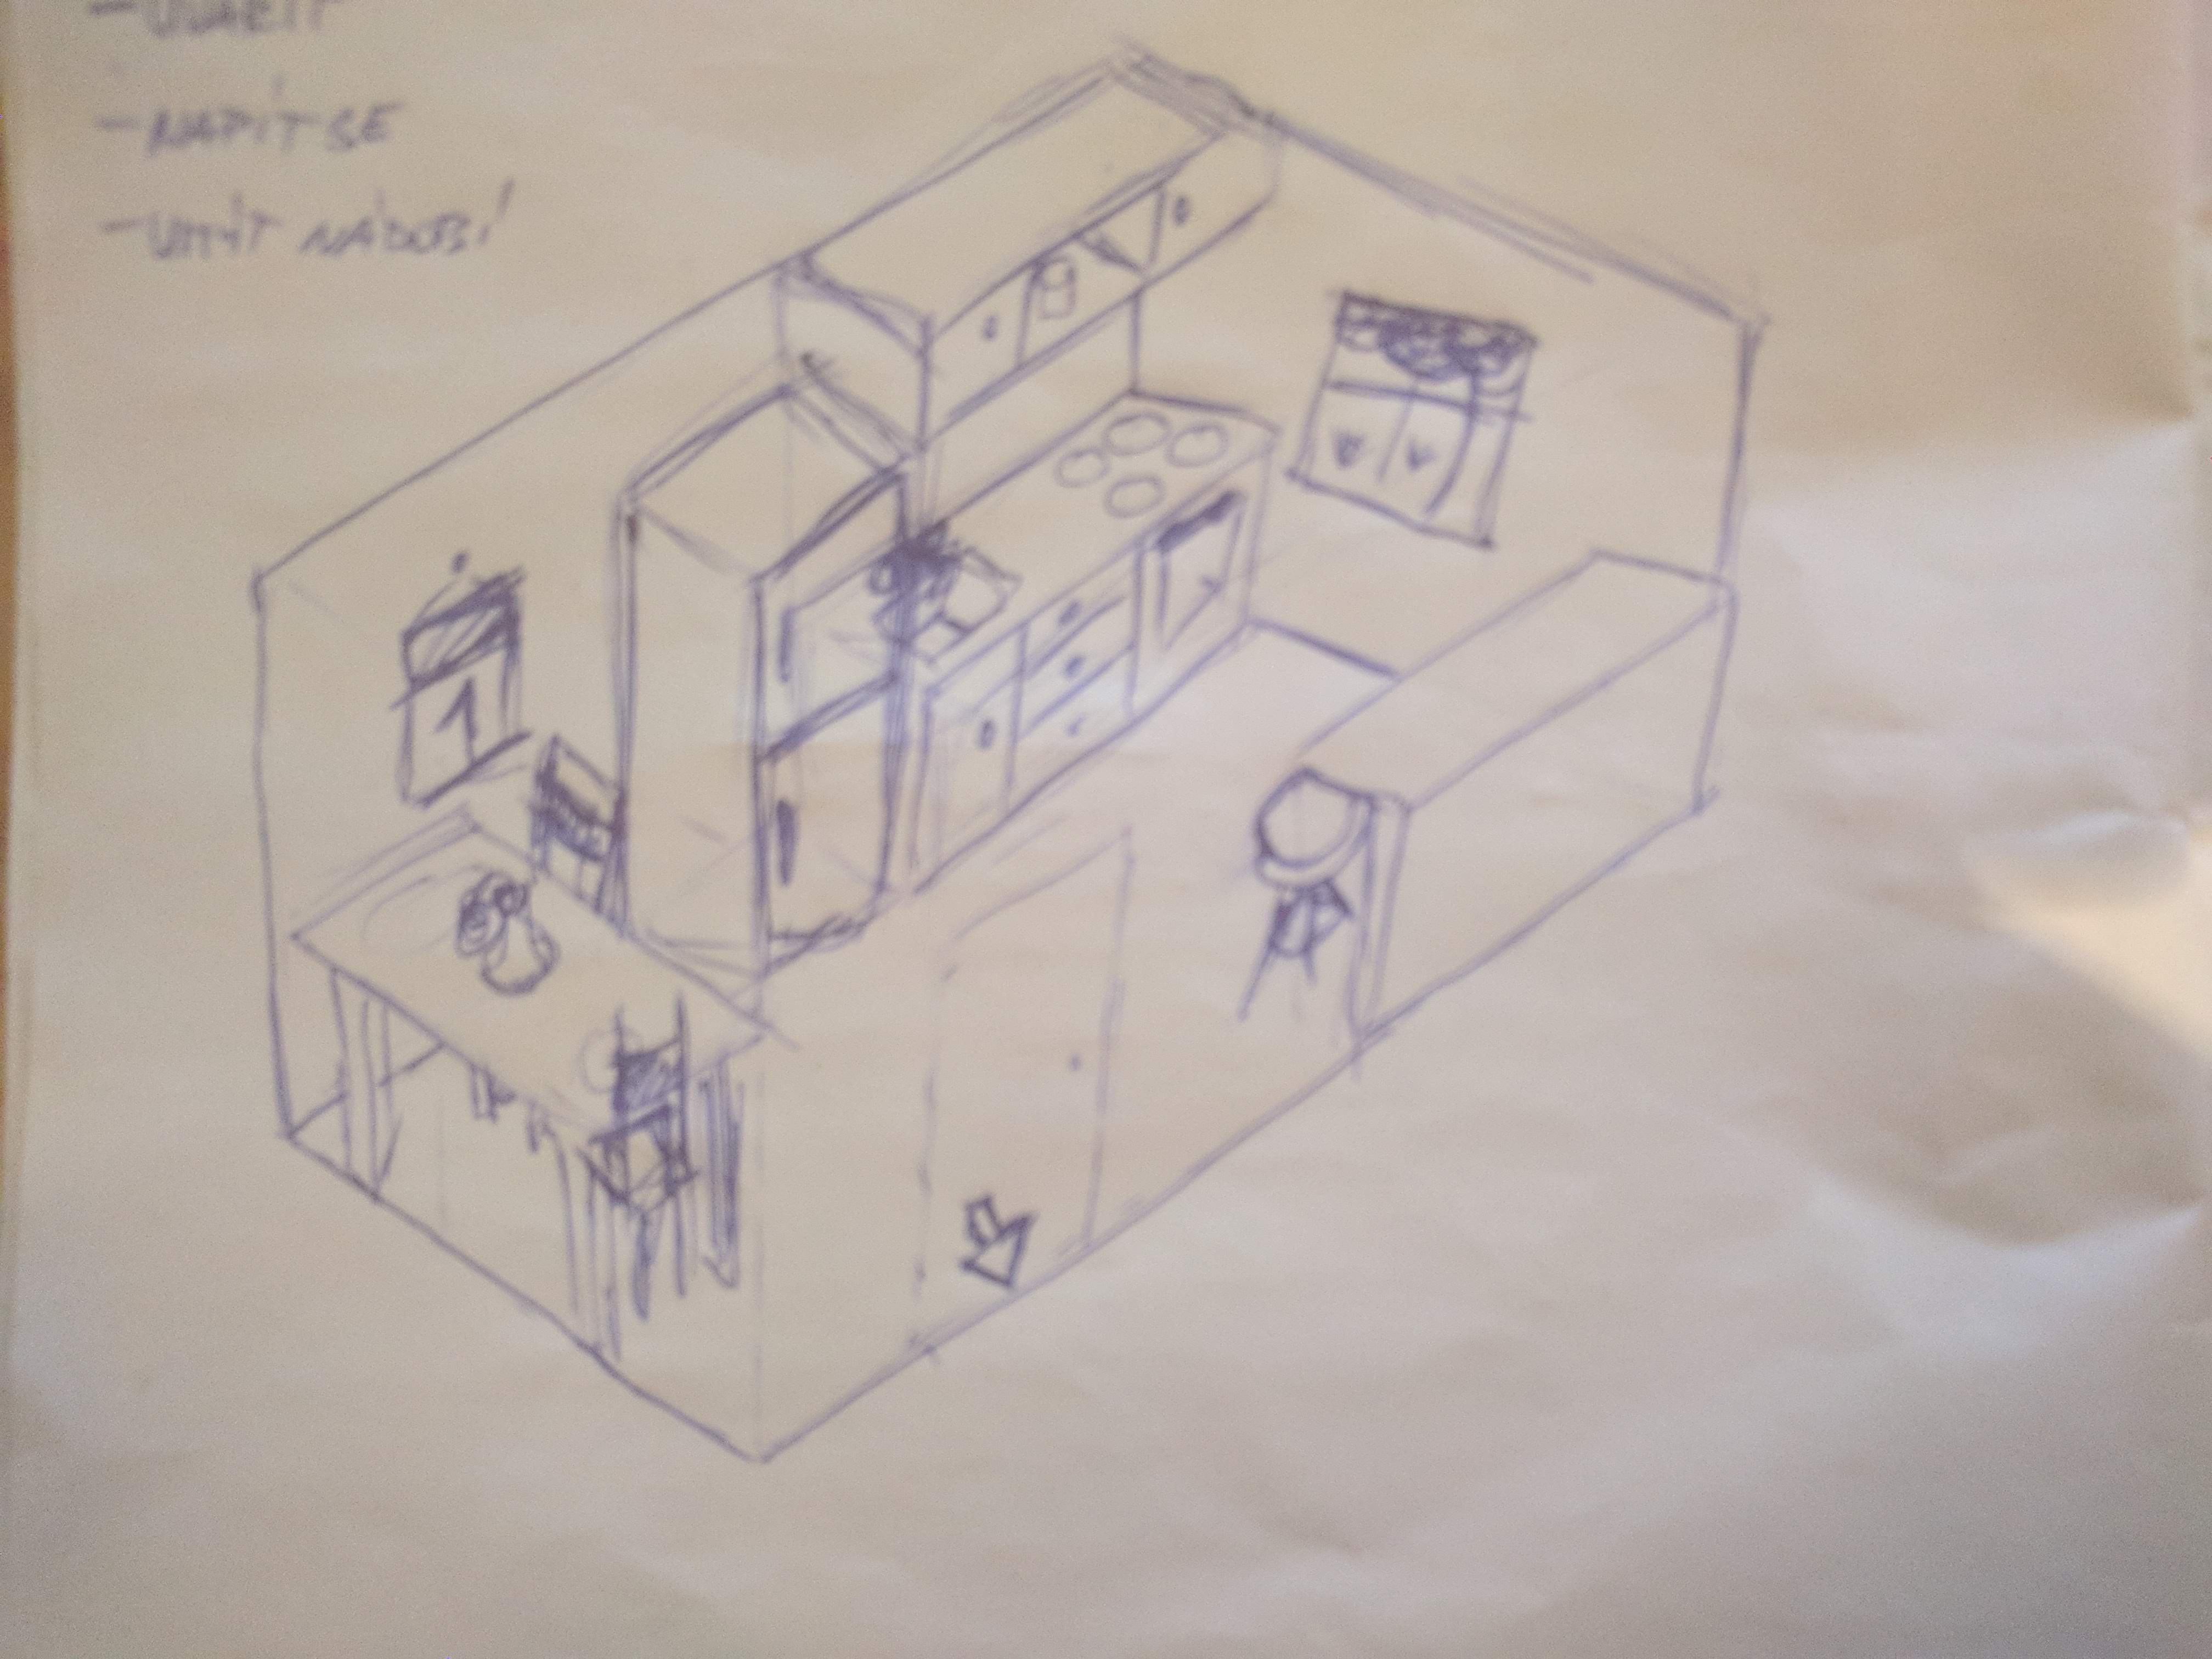 - UVAŘIT
- NAPÍT SE
- UMÝT NÁDOBÍ
1